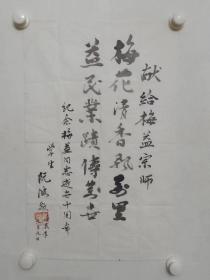 献给梅益宗师
梅花清香飘万里
益民业绩传万世
纪念梅益同志逝世十周年
学生
阮